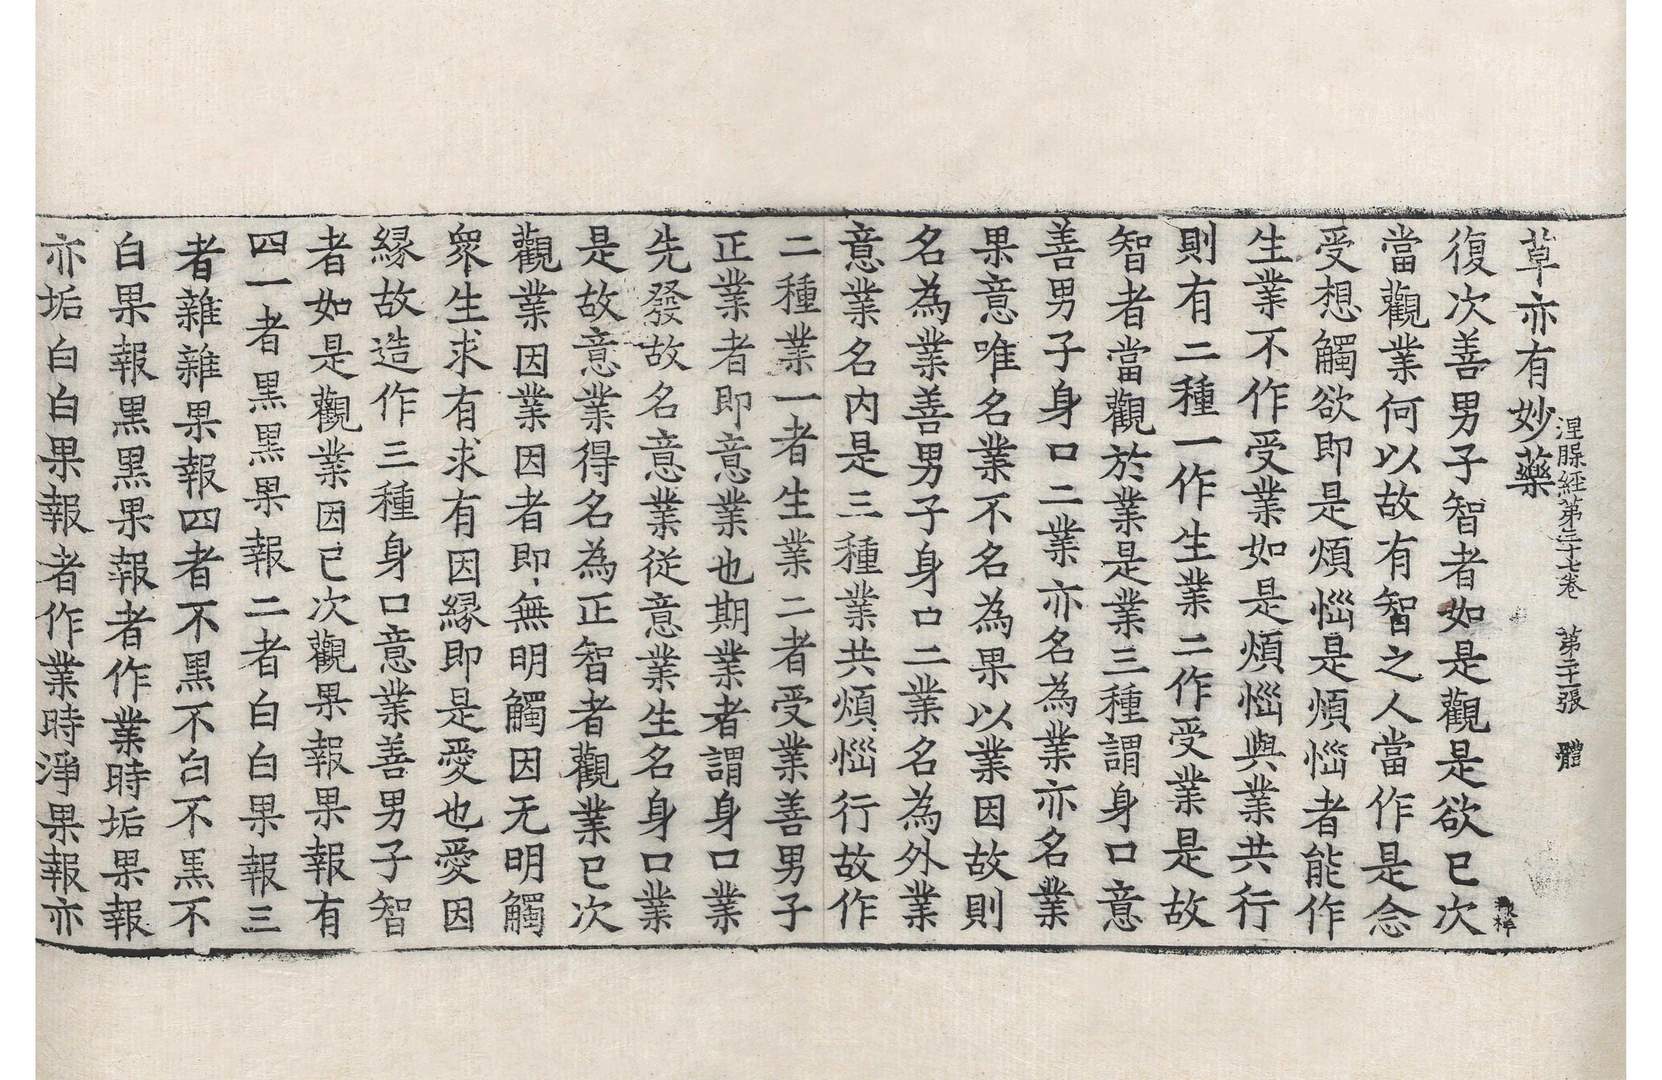 涅槃經第三十七卷　第二十張　體
草亦有妙藥
復次善男子智者如是觀是欲已次
當觀業何以故有智之人當作是念
受想觸欲即是煩惱是煩惱者能作
生業不作受業如是煩惱與業共行
則有二種一作生業二作受業是故
智者當觀於業是業三種謂身口意
善男子身口二業亦名為業亦名業
果意唯名業不名為果以業因故則
名為業善男子身口二業名為外業
意業名內是三種業共煩惱行故作
二種業一者生業二者受業善男子
正業者即意業也期業者謂身口業
先發故名意業從意業生名身口業
是故意業得名為正智者觀業已次
觀業因業因者即無明觸因无明觸
眾生求有求有因緣即是愛也愛因
緣故造作三種身口意業善男子智
者如是觀業因已次觀果報果報有
四一者黑黑果報二者白白果報三
者雜雜果報四者不黑不白不黑不
白果報黑黑果報者作業時垢果報
亦垢白白果報者作業時淨果報亦